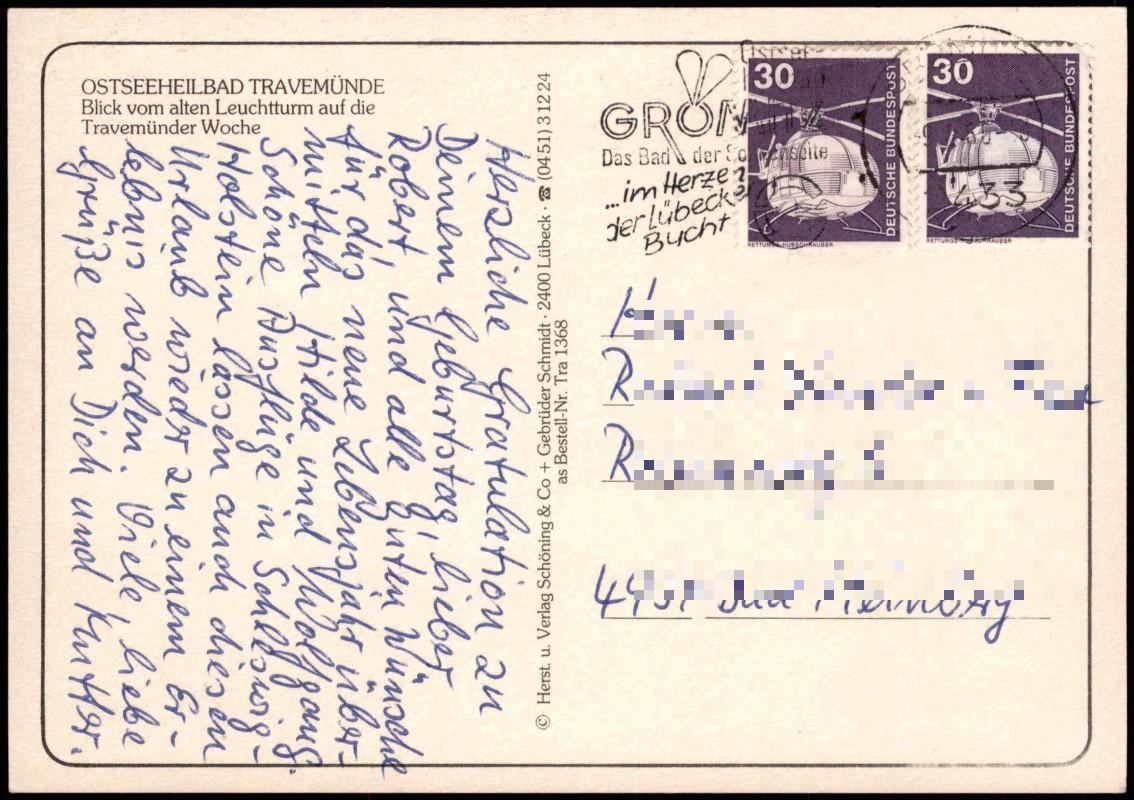 OSTSEEHEILBAD TRAVEMÜNDE
Blick vom alten Leuchtturm auf die
Travemünder Woche
Herzliche Gratulation zu
Deinem Geburtstag, lieber
Robert, und alle guten Wünsche
für das neue Lebensjahr über-
mitteln Hilde und Wolfgang.
Schöne Ausflüge in Schleswig-
Holstein lassen auch diesen
Urlaub wieder zu einem Er-
lebnis werden. Viele, liebe
Grüße an Dich und Mutter.
© Herst. u. Verlag Schöning & Co + Gebrüder Schmidt · 2400 Lübeck · ☎ (0451) 3 12 24
as Bestell-Nr. Tra 1368
Ostsee-
GRÖM
Das Bad der Sonnenseite
...im Herzen
der Lübecker
Bucht
30
DEUTSCHE BUNDESPOST
RETTUNGS-HUBSCHRAUBER
30
DEUTSCHE BUNDESPOST
RETTUNGS-HUBSCHRAUBER
433